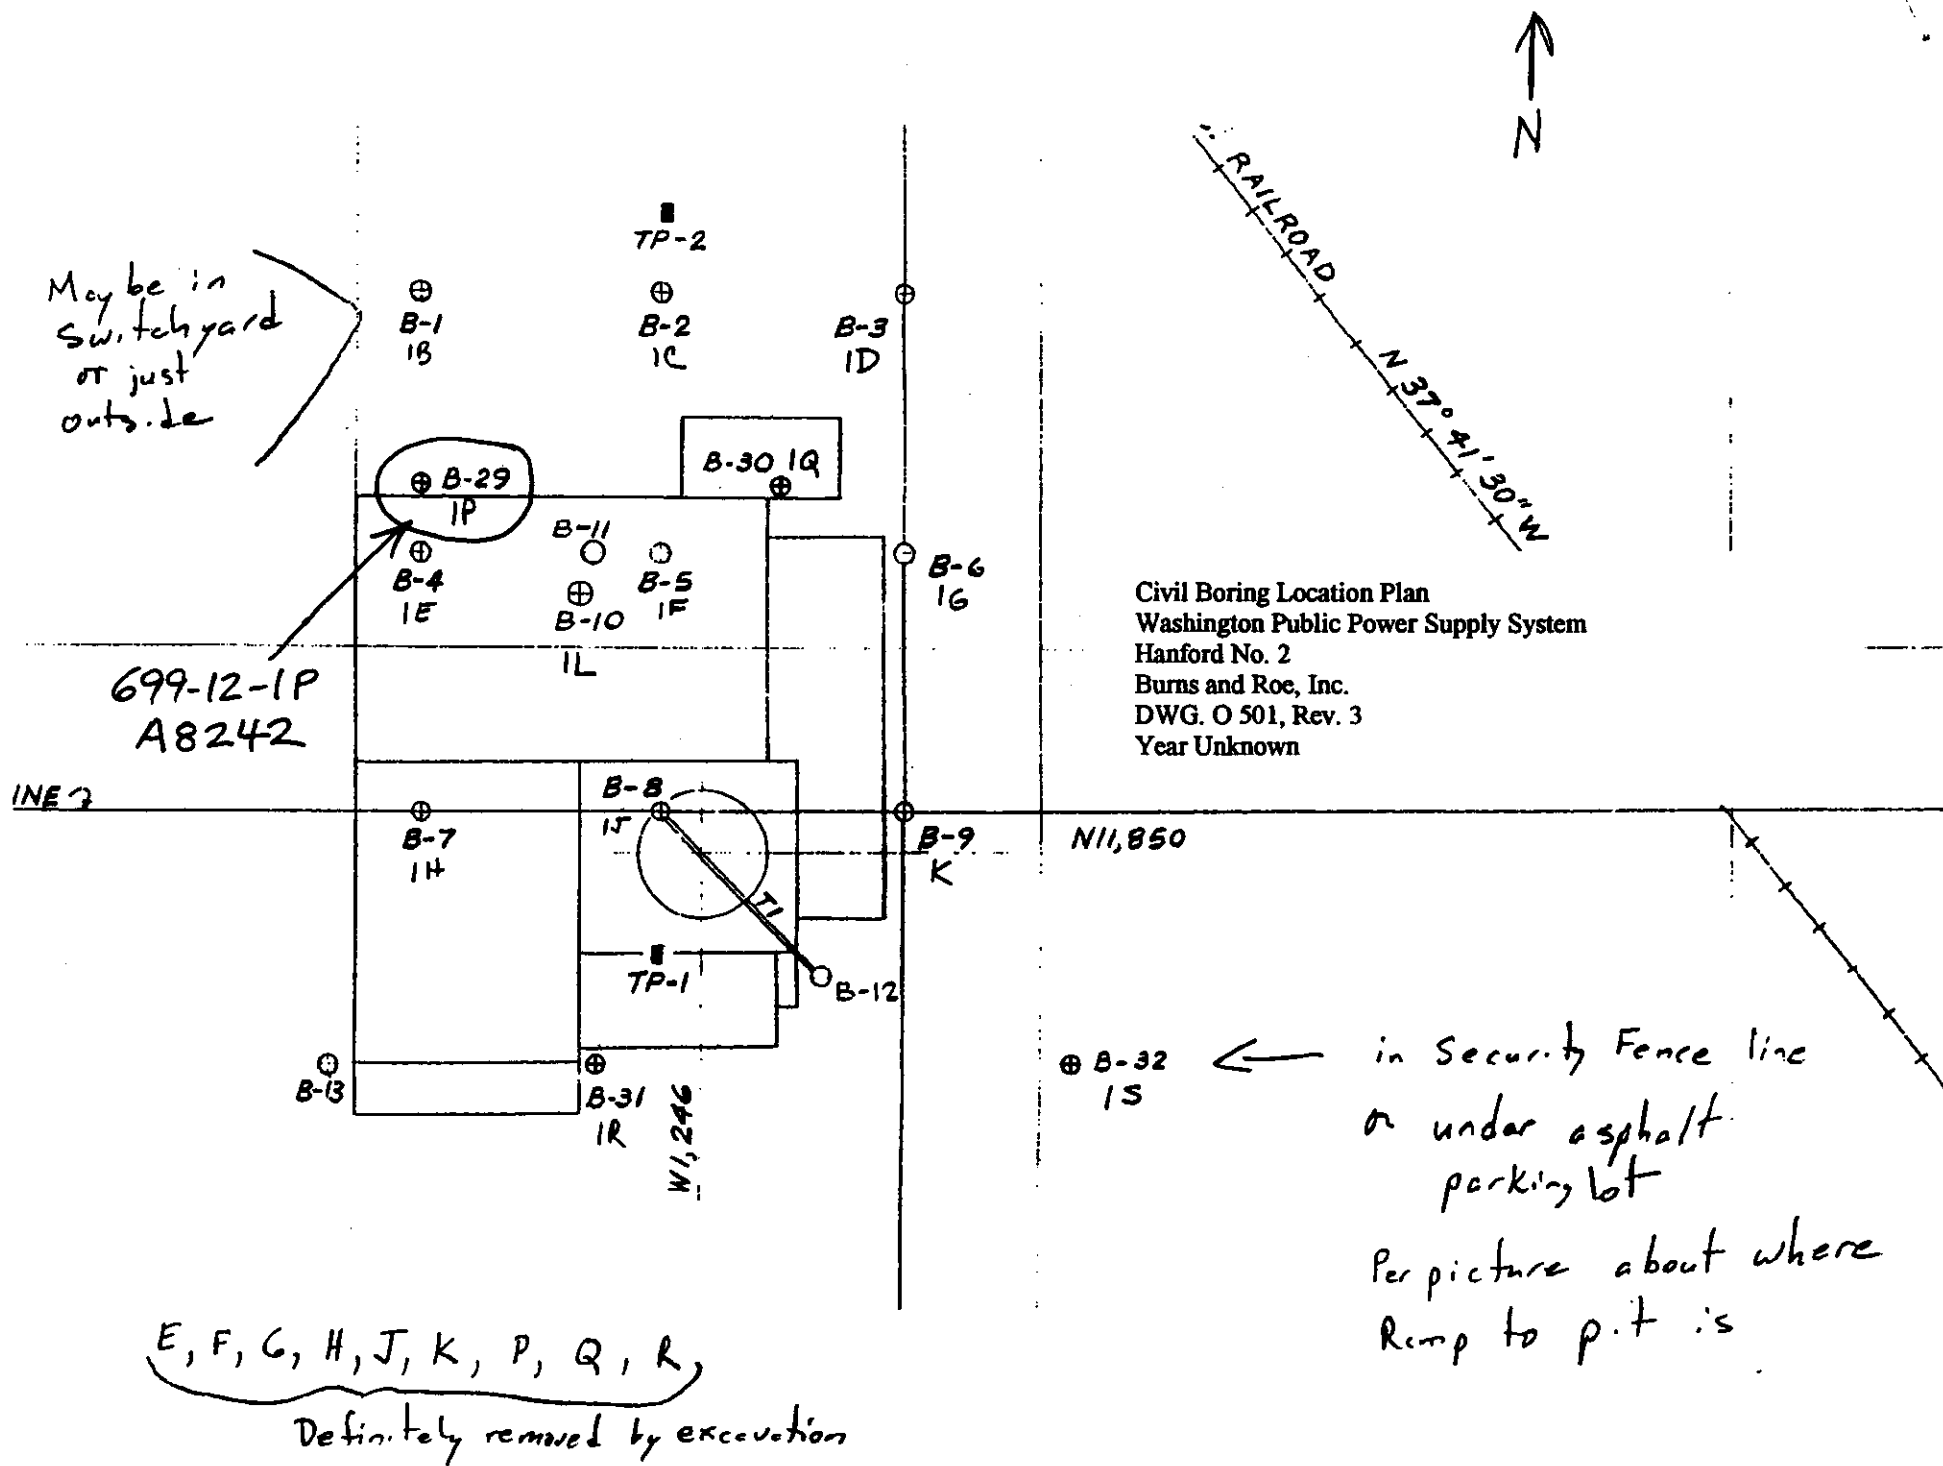 N
RAILROAD
N 37° 41' 30" W
TP-2
May be in
Switchyard
or just
outside
B-1
1B
B-2
1C
B-3
1D
B-29
1P
B-30 1Q
B-11
B-4
1E
B-10
B-5
1F
B-6
1G
1L
699-12-1P
A8242
Civil Boring Location Plan
Washington Public Power Supply System
Hanford No. 2
Burns and Roe, Inc.
DWG. O 501, Rev. 3
Year Unknown
INE
B-8
1J
B-7
1H
B-9
K
N11,850
T1
TP-1
B-12
B-13
B-31
1R
W1,246
B-32
1S
in Security Fence line
or under asphalt
parking lot
Per picture about where
Ramp to pit is
E, F, G, H, J, K, P, Q, R,
Definitely removed by excavation